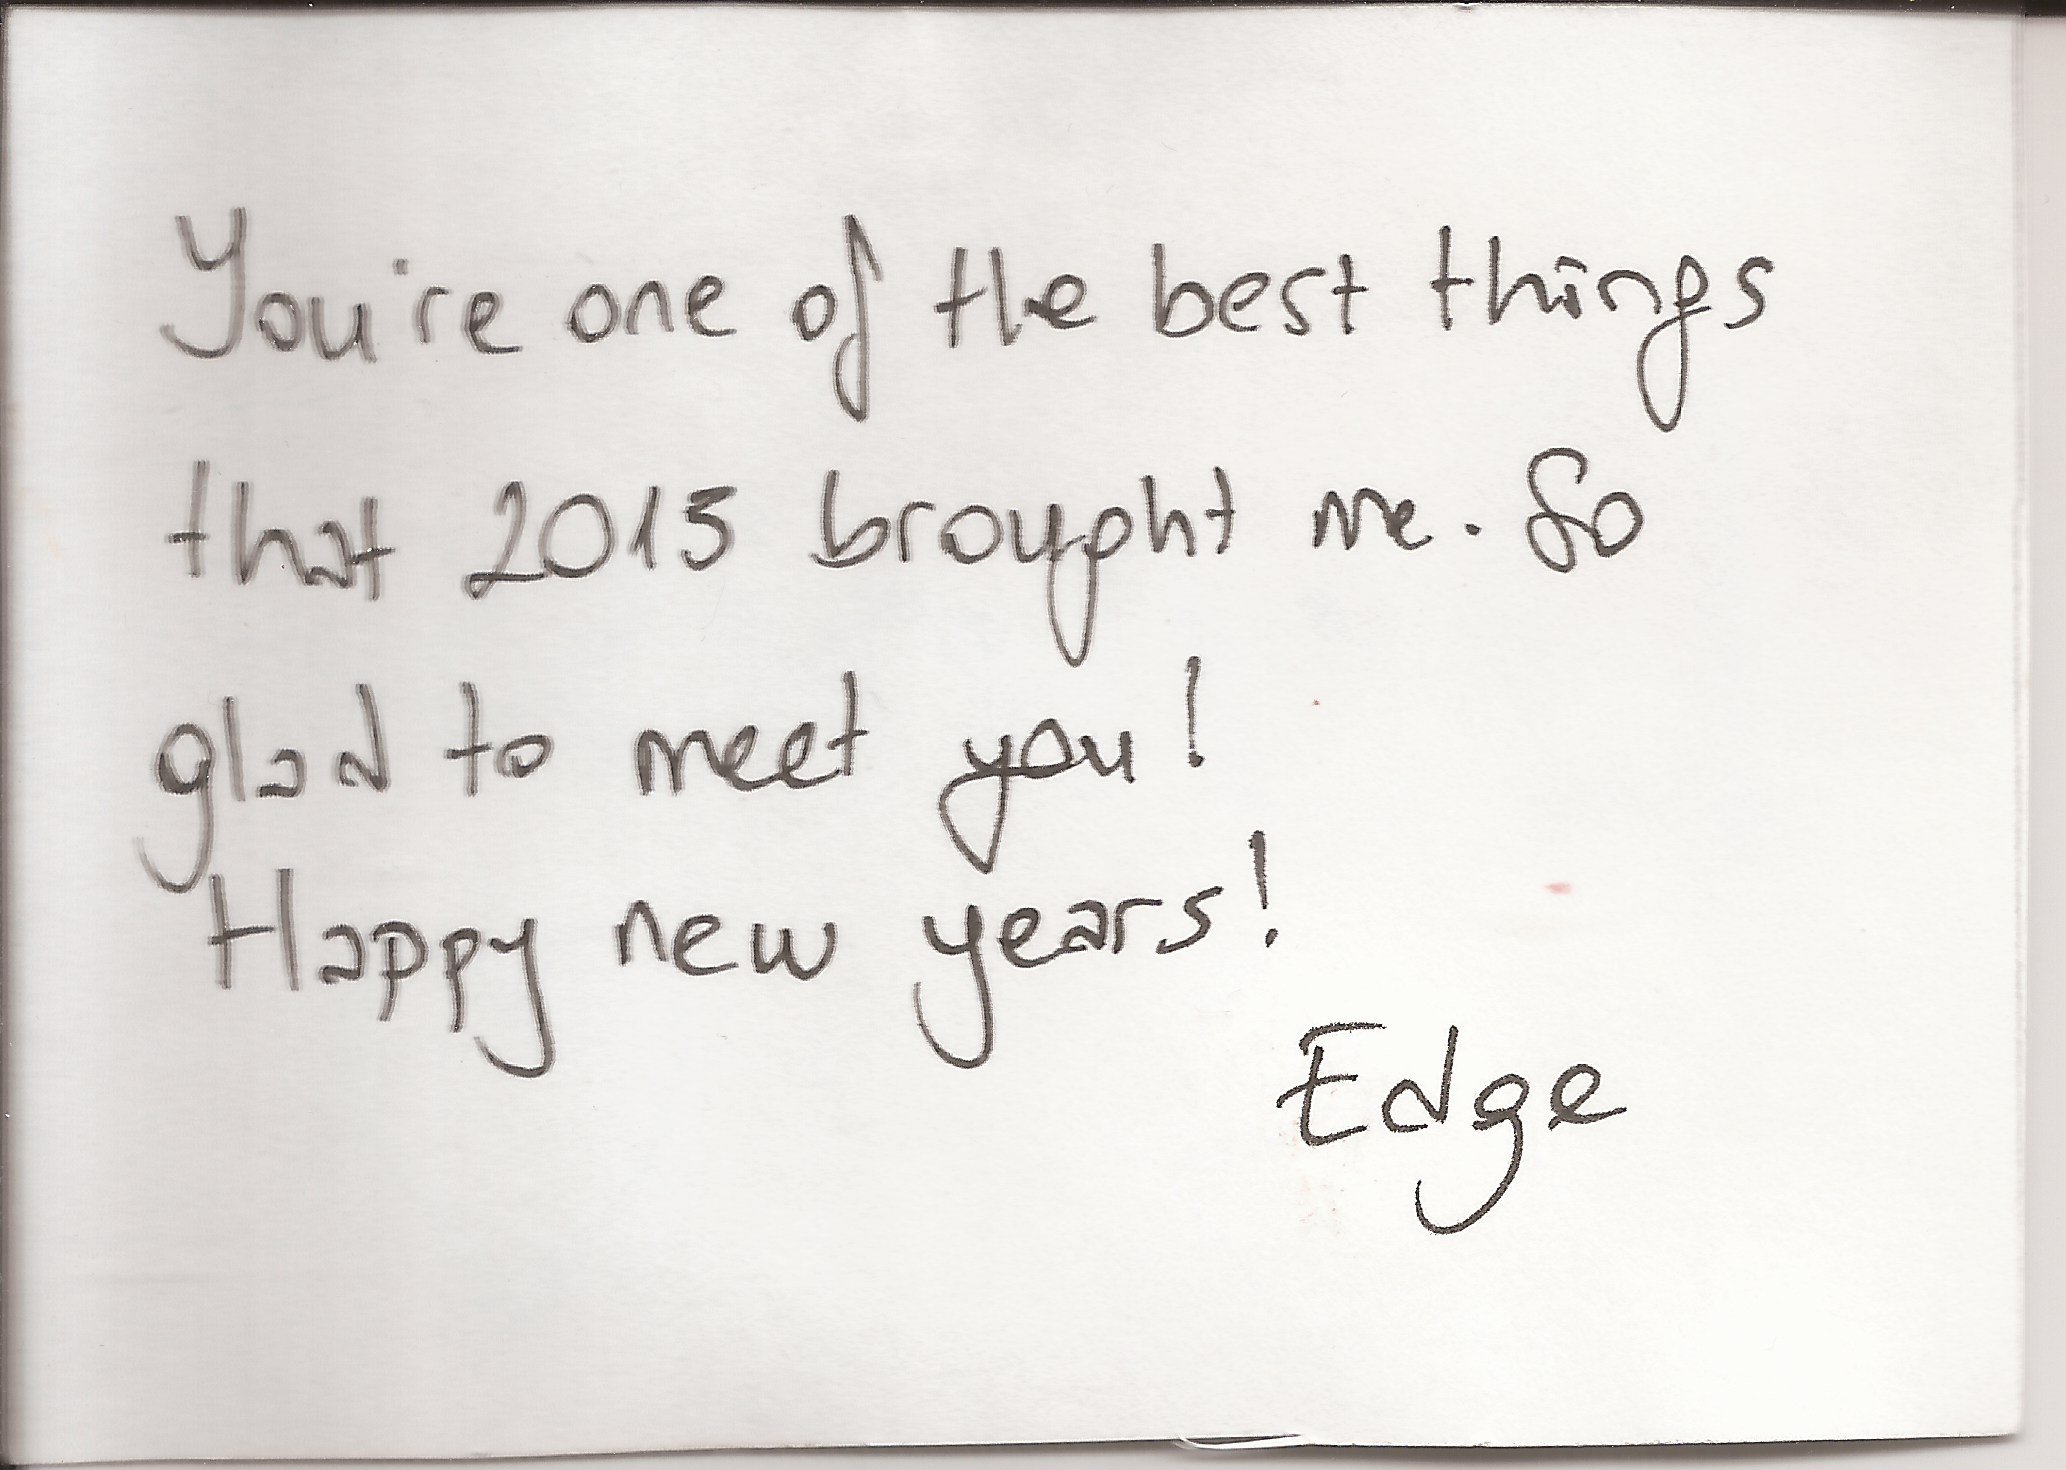 You're one of the best things
that 2013 brought me. So
glad to meet you!
Happy new years!
Edge